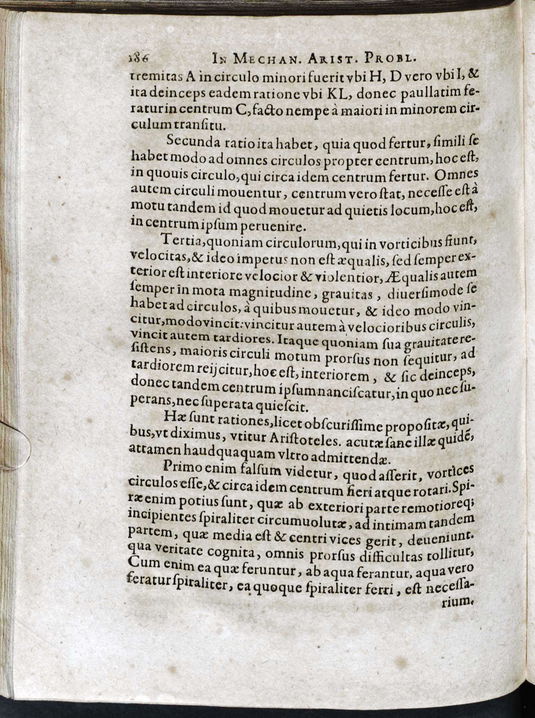 186 IN MECHAN. ARIST. PROBL.
tremitas A in circulo minori fuerit vbi H, D vero vbi I, &
ita deinceps eadem ratione vbi KL, donec paullatim fe-
ratur in centrum C, facto nempe à maiori in minorem cir-
culum transitu.
Secunda ratio ita habet, quia quod fertur, simili se
habet modo ad omnes circulos propter centrum, hoc est,
in quouis circulo, qui circa idem centrum fertur. Omnes
autem circuli mouentur, centrum vero stat, necesse est à
motu tandem id quod mouetur ad quietis locum, hoc est,
in centrum ipsum peruenire.
Tertia, quoniam circulorum, qui in vorticibus fiunt,
velocitas, & ideo impetus non est æqualis, sed semper ex-
terior est interiore velocior & violentior, Æqualis autem
semper in mota magnitudine, grauitas, diuersimode se
habet ad circulos, à quibus mouetur, & ideo modo vin-
citur, modo vincit: vincitur autem à velocioribus circulis,
vincit autem tardiores. Itaque quoniam sua grauitate re-
sistens, maioris circuli motum prorsus non sequitur, ad
tardiorem reijcitur, hoc est, interiorem, & sic deinceps,
donec tandem centrum ipsum nanciscatur, in quo nec su-
perans, nec superata quiescit.
Hæ sunt rationes, licet obscurissime propositæ, qui-
bus, vt diximus, vtitur Aristoteles. acutæ sane illæ quidē,
attamen haudquaquam vltro admittendæ.
Primo enim falsum videtur, quod asserit, vortices
circulos esse, & circa idem centrum fieri atque rotari. Spi-
ræ enim potius sunt, quæ ab exteriori parte remotioreq;
incipientes spiraliter circumuolutæ, ad intimam tandem
partem, quæ media est & centri vices gerit, deueniunt.
qua veritate cognita, omnis prorsus difficultas tollitur,
Cum enim ea quæ feruntur, ab aqua ferantur, aqua vero
feratur spiraliter, ea quoque spiraliter ferri, est necessa-
rium,